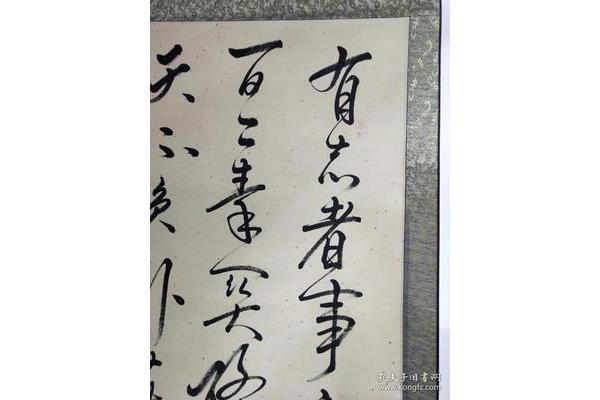 有志者事
百二秦关终
天不负卧
孔夫子旧书网
www.kongfz.com